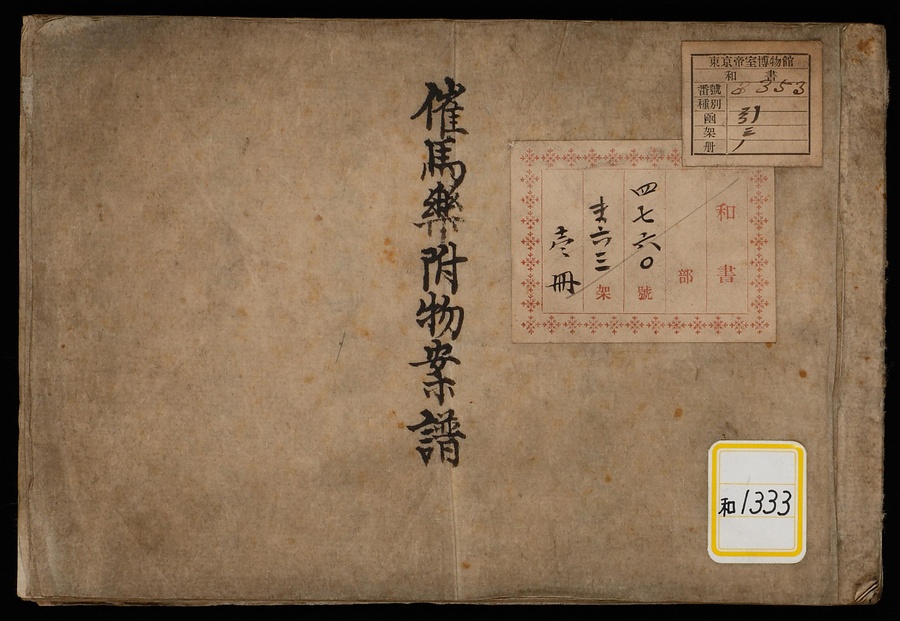 催馬樂附物案譜
東京帝室博物館
和書
番號 8353
種別
函 引
架 三
册 1
和書
部
四七六〇號
六三架
壱冊
和1333